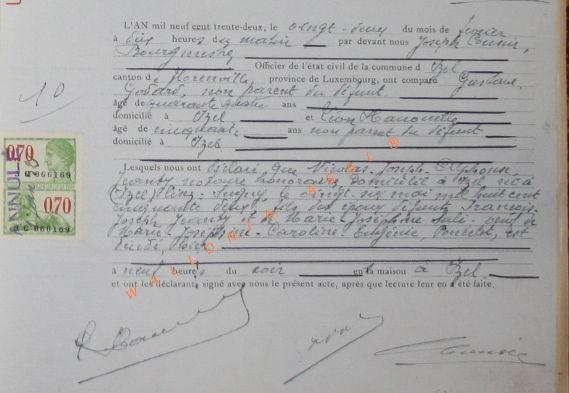 L'AN mil neuf cent trente-deux, le vingt-deux du mois de février
à dix heures du matin par devant nous Joseph
Bourgmestre
Officier de l'état civil de la commune d' Izel
canton de Florenville, province de Luxembourg, ont comparu Gustave
Godard, non parent du défunt
âgé de quarante quatre ans
domicilié à Izel et Léon Hanouille
âgé de cinquante ans non parent du défunt
domicilié à Izel
Lesquels nous ont déclaré que Nicolas-Joseph-Alphonse
notaire honoraire domicilié à Izel, né à
Izel le vingt six mai mil huit cent
cinquante deux, fils des époux Jean-François-
Joseph et de Marie-Joséphine veuf de
Marie-Joséphine-Caroline-Eugénie, Poncelet, est
décédé, hier
à neuf heures du soir en la maison à Izel.
et ont les déclarants, signé avec nous le présent acte, après que lecture leur en a été faite.
10
ANNULÉ
0.70
C 066169
0.70
C 066169
WALLONIE